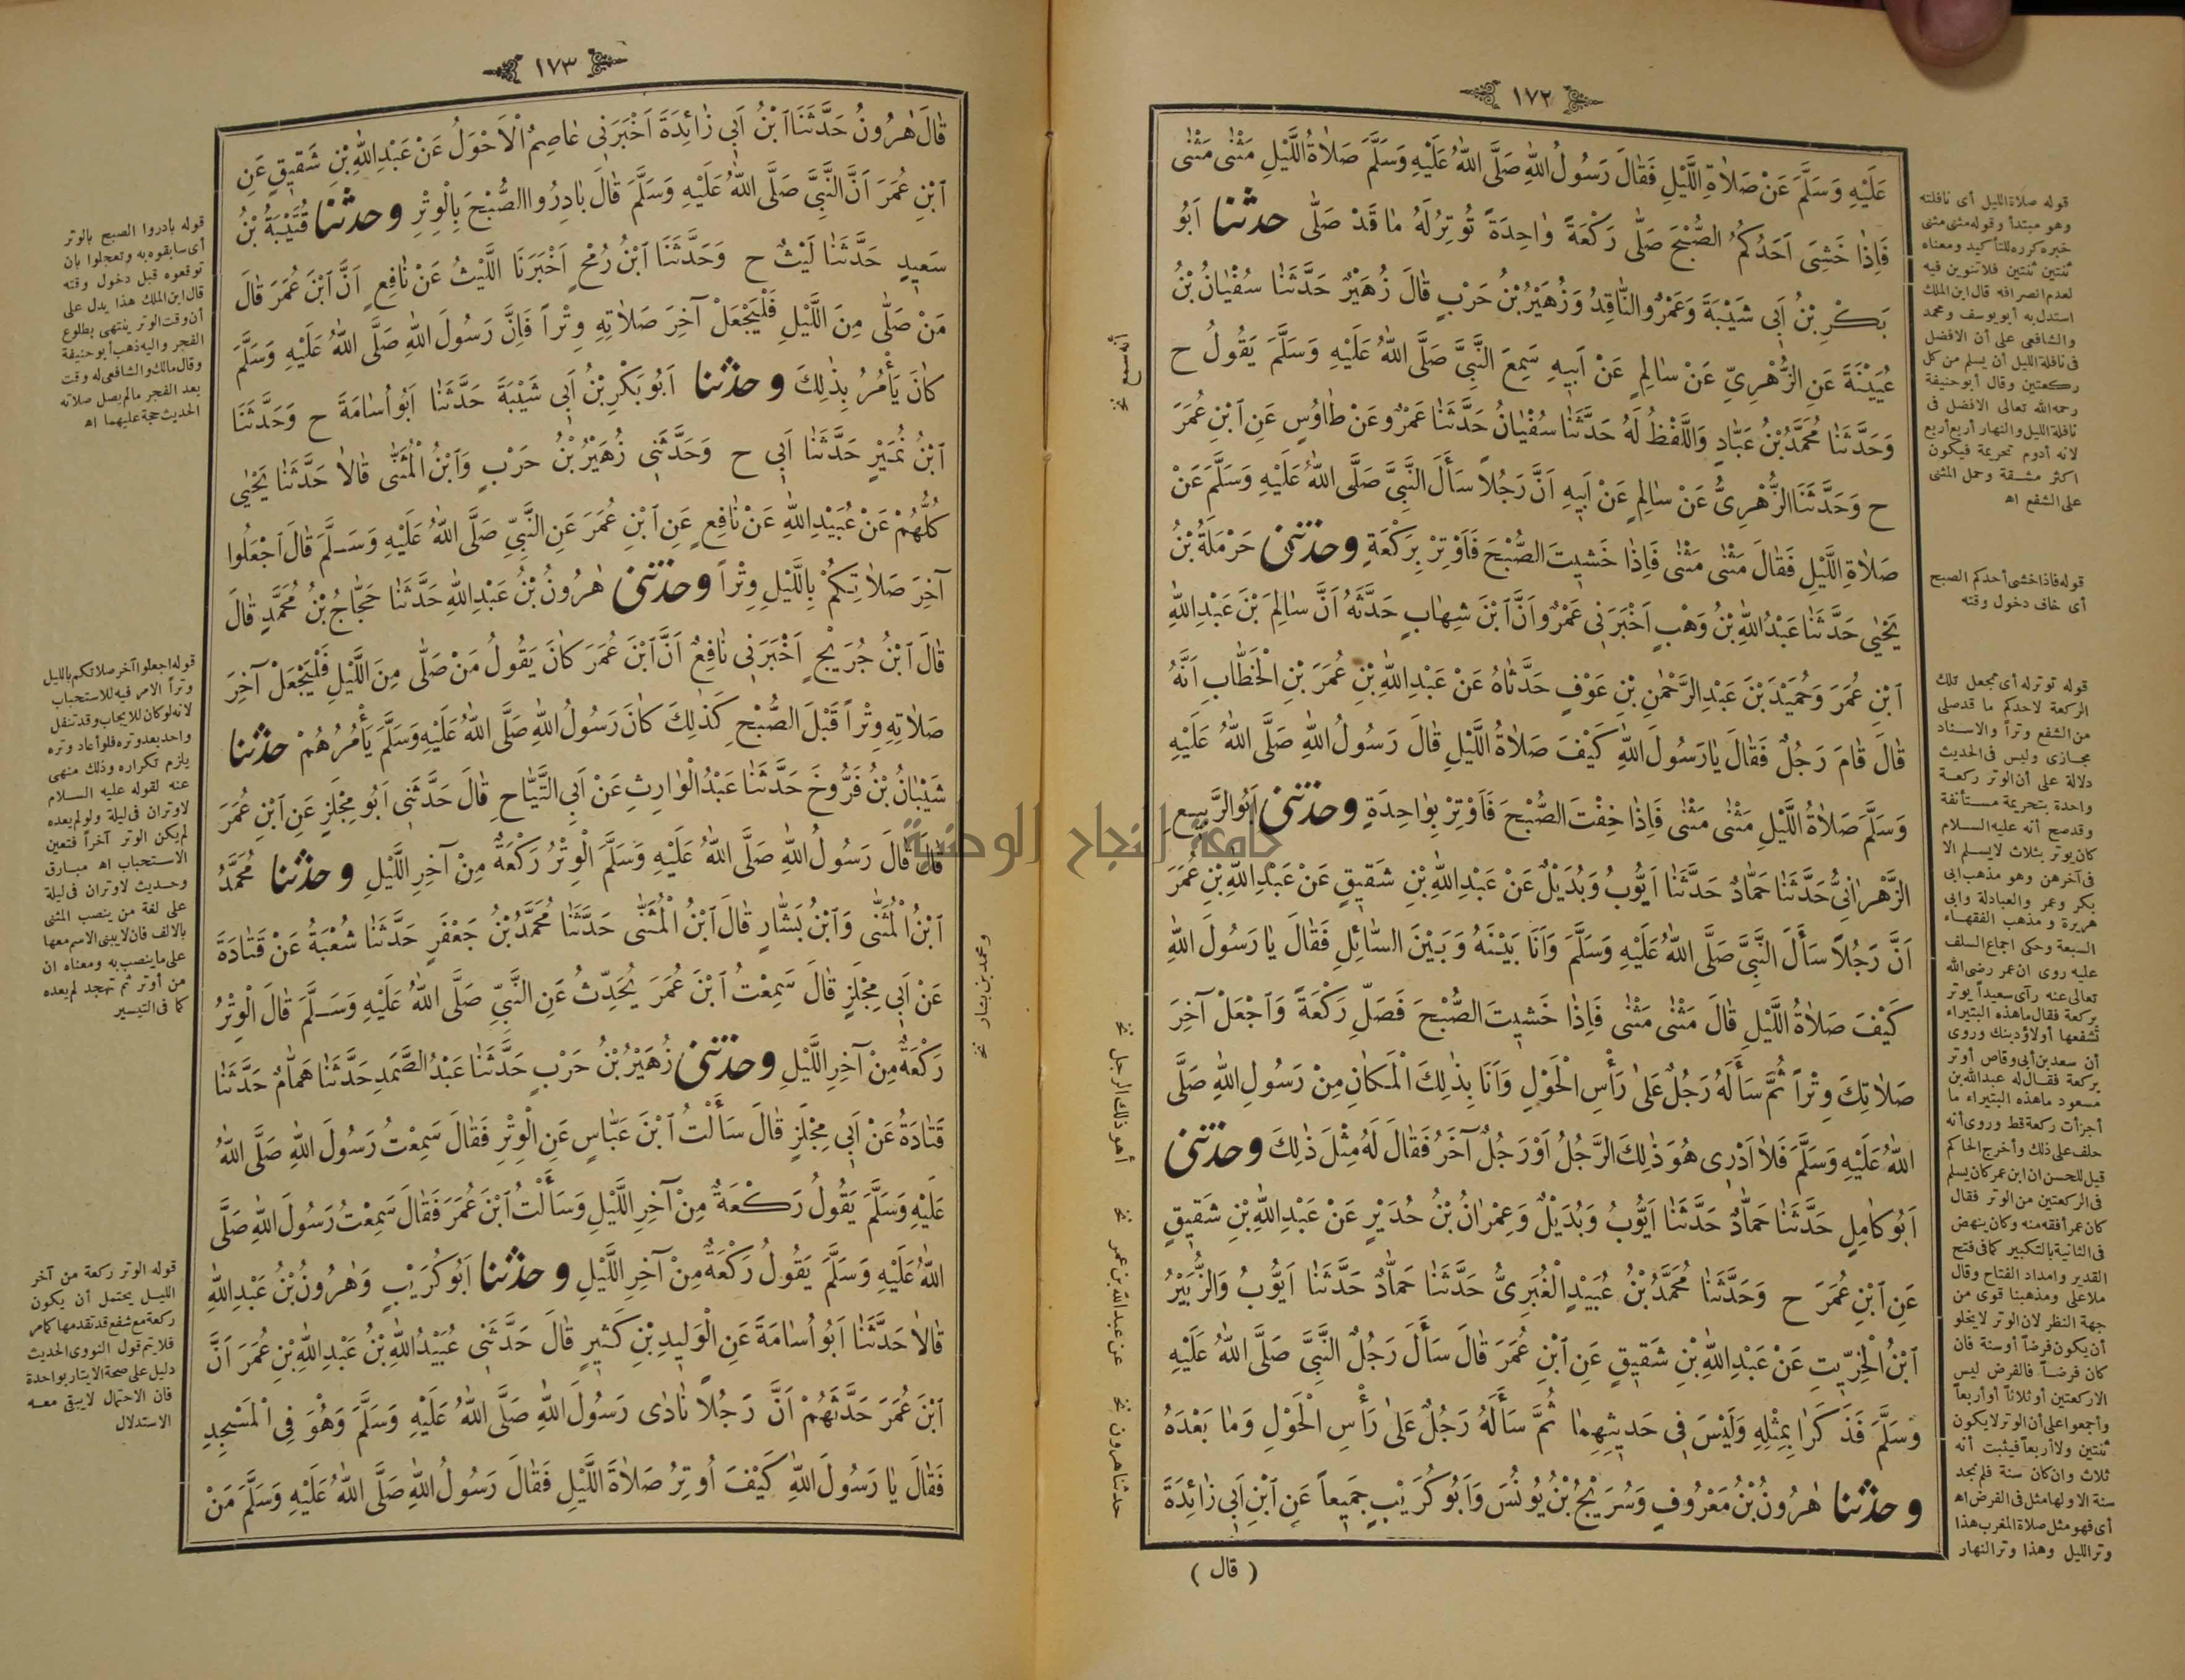 ١٧٢
عَلَيْهِ وَسَلَّمَ عَنْ صَلَاةِ اللَّيْلِ فَقَالَ رَسُولُ اللهِ صَلَّى اللهُ عَلَيْهِ وَسَلَّمَ صَلَاةُ اللَّيْلِ مَثْنَى مَثْنَى
فَإِذَا خَشِيَ اَحَدُكُمُ الصُّبْحَ صَلَّى رَكْعَةً وَاحِدَةً تُوتِرُ لَهُ مَا قَدْ صَلَّى حدثنا اَبُو
بَكْرِ بْنُ اَبِى شَيْبَةَ وَعَمْرٌو النَّاقِدُ وَزُهَيْرُ بْنُ حَرْبٍ قَالَ زُهَيْرٌ حَدَّثَنَا سُفْيَانُ بْنُ
عُيَيْنَةَ عَنِ الزُّهْرِىِّ عَنْ سَالِمٍ عَنْ اَبِيهِ سَمِعَ النَّبِىَّ صَلَّى اللهُ عَلَيْهِ وَسَلَّمَ يَقُولُ ح
وَحَدَّثَنَا مُحَمَّدُ بْنُ عَبَّادٍ وَاللَّفْظُ لَهُ حَدَّثَنَا سُفْيَانُ حَدَّثَنَا عَمْرٌو عَنْ طَاوُسٍ عَنِ ابْنِ عُمَرَ
ح وَحَدَّثَنَا الزُّهْرِىُّ عَنْ سَالِمٍ عَنْ اَبِيهِ اَنَّ رَجُلاً سَأَلَ النَّبِىَّ صَلَّى اللهُ عَلَيْهِ وَسَلَّمَ عَنْ
صَلَاةِ اللَّيْلِ فَقَالَ مَثْنَى مَثْنَى فَاِذَا خَشِيتَ الصُّبْحَ فَاَوْتِرْ بِرَكْعَةٍ وحدثنى حَرْمَلَةُ بْنُ
يَحْيَى حَدَّثَنَا عَبْدُ اللهِ بْنُ وَهْبٍ اَخْبَرَنِى عَمْرٌو اَنَّ ابْنَ شِهَابٍ حَدَّثَهُ اَنَّ سَالِمَ بْنَ عَبْدِ اللهِ
ابْنِ عُمَرَ وَحُمَيْدَ بْنَ عَبْدِ الرَّحْمٰنِ بْنِ عَوْفٍ حَدَّثَاهُ عَنْ عَبْدِ اللهِ بْنِ عُمَرَ بْنِ الْخَطَّابِ اَنَّهُ
قَالَ قَامَ رَجُلٌ فَقَالَ يَا رَسُولَ اللهِ كَيْفَ صَلَاةُ اللَّيْلِ قَالَ رَسُولُ اللهِ صَلَّى اللهُ عَلَيْهِ
وَسَلَّمَ صَلَاةُ اللَّيْلِ مَثْنَى مَثْنَى فَاِذَا خِفْتَ الصُّبْحَ فَاَوْتِرْ بِوَاحِدَةٍ وحدثنى اَبُو الرَّبِيعِ
الزَّهْرَانِىُّ حَدَّثَنَا حَمَّادٌ حَدَّثَنَا اَيُّوبُ وَبُدَيْلٌ عَنْ عَبْدِ اللهِ بْنِ شَقِيقٍ عَنْ عَبْدِ اللهِ بْنِ عُمَرَ
اَنَّ رَجُلاً سَأَلَ النَّبِىَّ صَلَّى اللهُ عَلَيْهِ وَسَلَّمَ وَاَنَا بَيْنَهُ وَبَيْنَ السَّائِلِ فَقَالَ يَا رَسُولَ اللهِ
كَيْفَ صَلَاةُ اللَّيْلِ قَالَ مَثْنَى مَثْنَى فَاِذَا خَشِيتَ الصُّبْحَ فَصَلِّ رَكْعَةً وَاجْعَلْ آخِرَ
صَلَاتِكَ وِتْراً ثُمَّ سَأَلَهُ رَجُلٌ عَلَى رَأْسِ الْحَوْلِ وَاَنَا بِذٰلِكَ الْمَكَانِ مِنْ رَسُولِ اللهِ صَلَّى
اللهُ عَلَيْهِ وَسَلَّمَ فَلَا اَدْرِى هُوَ ذٰلِكَ الرَّجُلُ اَوْ رَجُلٌ آخَرُ فَقَالَ لَهُ مِثْلَ ذٰلِكَ وحدثنى
اَبُو كَامِلٍ حَدَّثَنَا حَمَّادٌ حَدَّثَنَا اَيُّوبُ وَبُدَيْلٌ وَعِمْرَانُ بْنُ حُدَيْرٍ عَنْ عَبْدِ اللهِ بْنِ شَقِيقٍ
عَنِ ابْنِ عُمَرَ ح وَحَدَّثَنَا مُحَمَّدُ بْنُ عُبَيْدٍ الْغُبَرِىُّ حَدَّثَنَا حَمَّادٌ حَدَّثَنَا اَيُّوبُ وَالزُّبَيْرُ
ابْنُ الْخِرِّيتِ عَنْ عَبْدِ اللهِ بْنِ شَقِيقٍ عَنِ ابْنِ عُمَرَ قَالَ سَأَلَ رَجُلٌ النَّبِىَّ صَلَّى اللهُ عَلَيْهِ
وَسَلَّمَ فَذَكَرَا بِمِثْلِهِ وَلَيْسَ فِى حَدِيثِهِمَا ثُمَّ سَأَلَهُ رَجُلٌ عَلَى رَأْسِ الْحَوْلِ وَمَا بَعْدَهُ
وحدثنا هٰرُونُ بْنُ مَعْرُوفٍ وَسُرَيْجُ بْنُ يُونُسَ وَاَبُو كُرَيْبٍ جَمِيعاً عَنِ ابْنِ اَبِى زَائِدَةَ
( قال )
قوله صلاة الليل أى نافلته
وهو مبتدأ وقوله مثنى مثنى
خبره كرره للتأكيد ومعناه
ثنتين ثنتين فلا تنوين فيه
لعدم انصرافه قال ابن الملك
استدل به أبو يوسف ومحمد
والشافعى على أن الافضل
فى نافلة الليل أن يسلم من كل
ركعتين وقال أبو حنيفة
رحمه الله تعالى الافضل فى
نافلة الليل والنهار أربع أربع
لانه أدوم تحريمة فيكون
اكثر مشقة وحمل المثنى
على الشفع اه
قوله فاذا خشى أحدكم الصبح
أى خاف دخول وقته
قوله توتر له أى تجعل تلك
الركعة لاحدكم ما قد صلى
من الشفع وتراً والاسناد
مجازى وليس فى الحديث
دلالة على أن الوتر ركعة
واحدة بتحريمة مستأنفة
وقد صح أنه عليه السلام
كان يوتر بثلاث لا يسلم الا
فى آخرهن وهو مذهب ابى
بكر وعمر والعبادلة وابى
هريرة ومذهب الفقهاء
السبعة وحكى اجماع السلف
عليه روى ان عمر رضى الله
تعالى عنه رآى سعيداً يوتر
بركعة فقال ما هذه البتيراء
تشفعها أو لاؤدبنك وروى
أن سعد بن أبى وقاص أوتر
بركعة فقال له عبد الله بن
مسعود ما هذه البتيراء ما
أجزأت ركعة قط وروى أنه
حلف على ذلك وأخرج الحاكم
قيل للحسن ان ابن عمر كان يسلم
فى الركعتين من الوتر فقال
كان عمر أفقه منه وكان ينهض
فى الثانية بالتكبير كما فى فتح
القدير وامداد الفتاح وقال
ملا على ومذهبنا قوى من
جهة النظر لان الوتر لا يخلو
أن يكون فرضاً أو سنة فان
كان فرضاً فالفرض ليس
الا ركعتين أو ثلاثاً أو أربعاً
وأجمعوا على أن الوتر لا يكون
ثنتين ولا أربعاً فيثبت أنه
ثلاث وان كان سنة فلم نجد
سنة الا ولها مثل فى الفرض اه
أى فهو مثل صلاة المغرب هذا
وتر الليل وهذا وتر النهار
أهو ذلك الرجل نخ
عن عبدالله بن عمر نخ
حدثنا هرون نخ
١٧٣
قَالَ هٰرُونُ حَدَّثَنَا ابْنُ اَبِى زَائِدَةَ اَخْبَرَنِى عَاصِمٌ الْاَحْوَلُ عَنْ عَبْدِ اللهِ بْنِ شَقِيقٍ عَنِ
ابْنِ عُمَرَ اَنَّ النَّبِىَّ صَلَّى اللهُ عَلَيْهِ وَسَلَّمَ قَالَ بَادِرُوا الصُّبْحَ بِالْوِتْرِ وحدثنا قُتَيْبَةُ بْنُ
سَعِيدٍ حَدَّثَنَا لَيْثٌ ح وَحَدَّثَنَا ابْنُ رُمْحٍ اَخْبَرَنَا اللَّيْثُ عَنْ نَافِعٍ اَنَّ ابْنَ عُمَرَ قَالَ
مَنْ صَلَّى مِنَ اللَّيْلِ فَلْيَجْعَلْ آخِرَ صَلَاتِهِ وِتْراً فَاِنَّ رَسُولَ اللهِ صَلَّى اللهُ عَلَيْهِ وَسَلَّمَ
كَانَ يَأْمُرُ بِذٰلِكَ وحدثنا اَبُو بَكْرِ بْنُ اَبِى شَيْبَةَ حَدَّثَنَا اَبُو اُسَامَةَ ح وَحَدَّثَنَا
ابْنُ نُمَيْرٍ حَدَّثَنَا اَبِى ح وَحَدَّثَنِى زُهَيْرُ بْنُ حَرْبٍ وَابْنُ الْمُثَنَّى قَالَا حَدَّثَنَا يَحْيَى
كُلُّهُمْ عَنْ عُبَيْدِ اللهِ عَنْ نَافِعٍ عَنِ ابْنِ عُمَرَ عَنِ النَّبِىِّ صَلَّى اللهُ عَلَيْهِ وَسَلَّمَ قَالَ اجْعَلُوا
آخِرَ صَلَاتِكُمْ بِاللَّيْلِ وِتْراً وحدثنى هٰرُونُ بْنُ عَبْدِ اللهِ حَدَّثَنَا حَجَّاجُ بْنُ مُحَمَّدٍ قَالَ
قَالَ ابْنُ جُرَيْجٍ اَخْبَرَنِى نَافِعٌ اَنَّ ابْنَ عُمَرَ كَانَ يَقُولُ مَنْ صَلَّى مِنَ اللَّيْلِ فَلْيَجْعَلْ آخِرَ
صَلَاتِهِ وِتْراً قَبْلَ الصُّبْحِ كَذٰلِكَ كَانَ رَسُولُ اللهِ صَلَّى اللهُ عَلَيْهِ وَسَلَّمَ يَأْمُرُهُمْ حدثنا
شَيْبَانُ بْنُ فَرُّوخَ حَدَّثَنَا عَبْدُ الْوَارِثِ عَنْ اَبِى التَّيَّاحِ قَالَ حَدَّثَنِى اَبُو مِجْلَزٍ عَنِ ابْنِ عُمَرَ
قَالَ قَالَ رَسُولُ اللهِ صَلَّى اللهُ عَلَيْهِ وَسَلَّمَ الْوِتْرُ رَكْعَةٌ مِنْ آخِرِ اللَّيْلِ وحدثنا مُحَمَّدُ
ابْنُ الْمُثَنَّى وَابْنُ بَشَّارٍ قَالَ ابْنُ الْمُثَنَّى حَدَّثَنَا مُحَمَّدُ بْنُ جَعْفَرٍ حَدَّثَنَا شُعْبَةُ عَنْ قَتَادَةَ
عَنْ اَبِى مِجْلَزٍ قَالَ سَمِعْتُ ابْنَ عُمَرَ يُحَدِّثُ عَنِ النَّبِىِّ صَلَّى اللهُ عَلَيْهِ وَسَلَّمَ قَالَ الْوِتْرُ
رَكْعَةٌ مِنْ آخِرِ اللَّيْلِ وحدثنى زُهَيْرُ بْنُ حَرْبٍ حَدَّثَنَا عَبْدُ الصَّمَدِ حَدَّثَنَا هَمَّامٌ حَدَّثَنَا
قَتَادَةُ عَنْ اَبِى مِجْلَزٍ قَالَ سَأَلْتُ ابْنَ عَبَّاسٍ عَنِ الْوِتْرِ فَقَالَ سَمِعْتُ رَسُولَ اللهِ صَلَّى اللهُ
عَلَيْهِ وَسَلَّمَ يَقُولُ رَكْعَةٌ مِنْ آخِرِ اللَّيْلِ وَسَأَلْتُ ابْنَ عُمَرَ فَقَالَ سَمِعْتُ رَسُولَ اللهِ صَلَّى
اللهُ عَلَيْهِ وَسَلَّمَ يَقُولُ رَكْعَةٌ مِنْ آخِرِ اللَّيْلِ وحدثنا اَبُو كُرَيْبٍ وَهٰرُونُ بْنُ عَبْدِ اللهِ
قَالَا حَدَّثَنَا اَبُو اُسَامَةَ عَنِ الْوَلِيدِ بْنِ كَثِيرٍ قَالَ حَدَّثَنِى عُبَيْدُ اللهِ بْنُ عَبْدِ اللهِ بْنِ عُمَرَ اَنَّ
ابْنَ عُمَرَ حَدَّثَهُمْ اَنَّ رَجُلاً نَادَى رَسُولَ اللهِ صَلَّى اللهُ عَلَيْهِ وَسَلَّمَ وَهُوَ فِى الْمَسْجِدِ
فَقَالَ يَا رَسُولَ اللهِ كَيْفَ اُوتِرُ صَلَاةَ اللَّيْلِ فَقَالَ رَسُولُ اللهِ صَلَّى اللهُ عَلَيْهِ وَسَلَّمَ مَنْ
ومحمد بن بشار نخ
قوله بادروا الصبح بالوتر
أى سابقوه به وتعجلوا بان
توقعوه قبل دخول وقته
قال ابن الملك هذا يدل على
أن وقت الوتر ينتهى بطلوع
الفجر واليه ذهب أبو حنيفة
وقال مالك والشافعى له وقت
بعد الفجر مالم يصل صلاته
الحديث حجة عليهما اه
قوله اجعلوا آخر صلاتكم بالليل
وتراً الامر فيه للاستحباب
لانه لو كان للايجاب وقد تنفل
واحد بعد وتره فلو أعاد وتره
يلزم تكراره وذلك منهى
عنه لقوله عليه السلام
لا وتران فى ليلة ولو لم يعده
لم يكن الوتر آخراً فتعين
الاستحباب اه مبارق
وحديث لا وتران فى ليلة
على لغة من ينصب المثنى
بالالف فان لا يبنى الاسم معها
على ما ينصب به ومعناه ان
من أوتر ثم تهجد لم يعده
كما فى التيسير
قوله الوتر ركعة من آخر
الليل يحتمل أن يكون
ركعة مع شفع قد تقدمها كما مر
فلا يتم قول النووى الحديث
دليل على صحة الايتار بواحدة
فان الاحتمال لا يبقى معه
الاستدلال
جامعة النجاح الوطنية